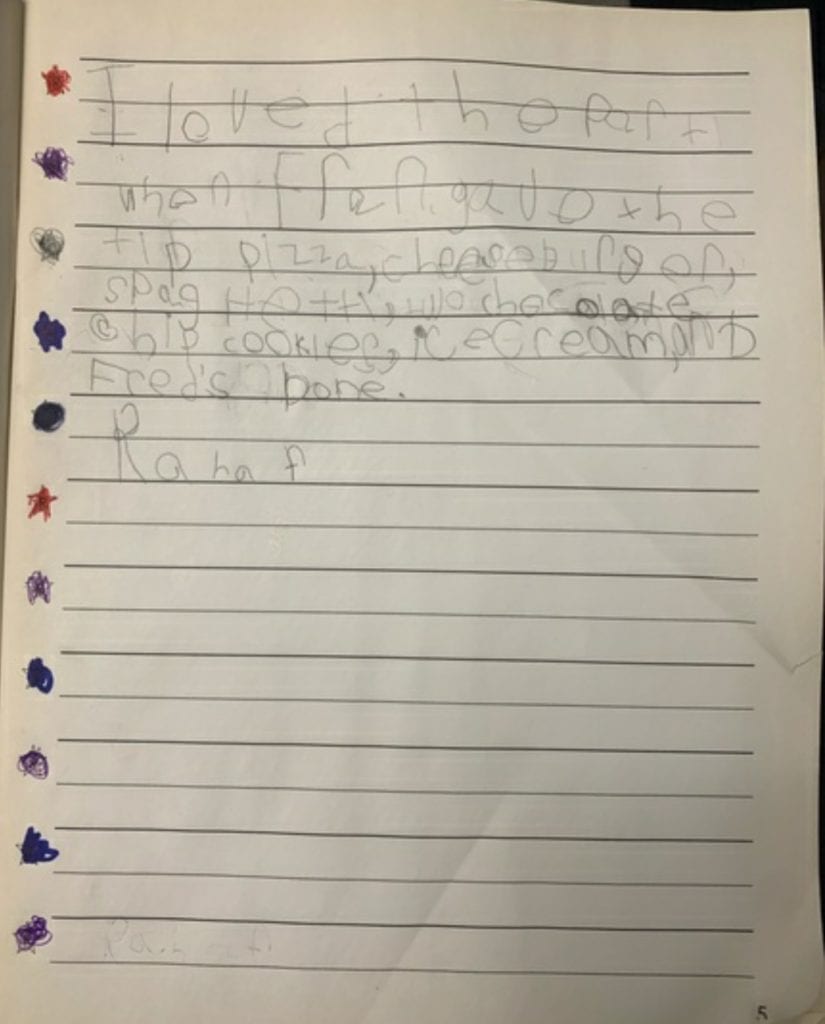 I loved the part
when Fran gave the
tip pizza, cheeseburger,
spaghetti, chocolate
chip cookies, ice cream, and
Fred's bone.
Rahaf
5